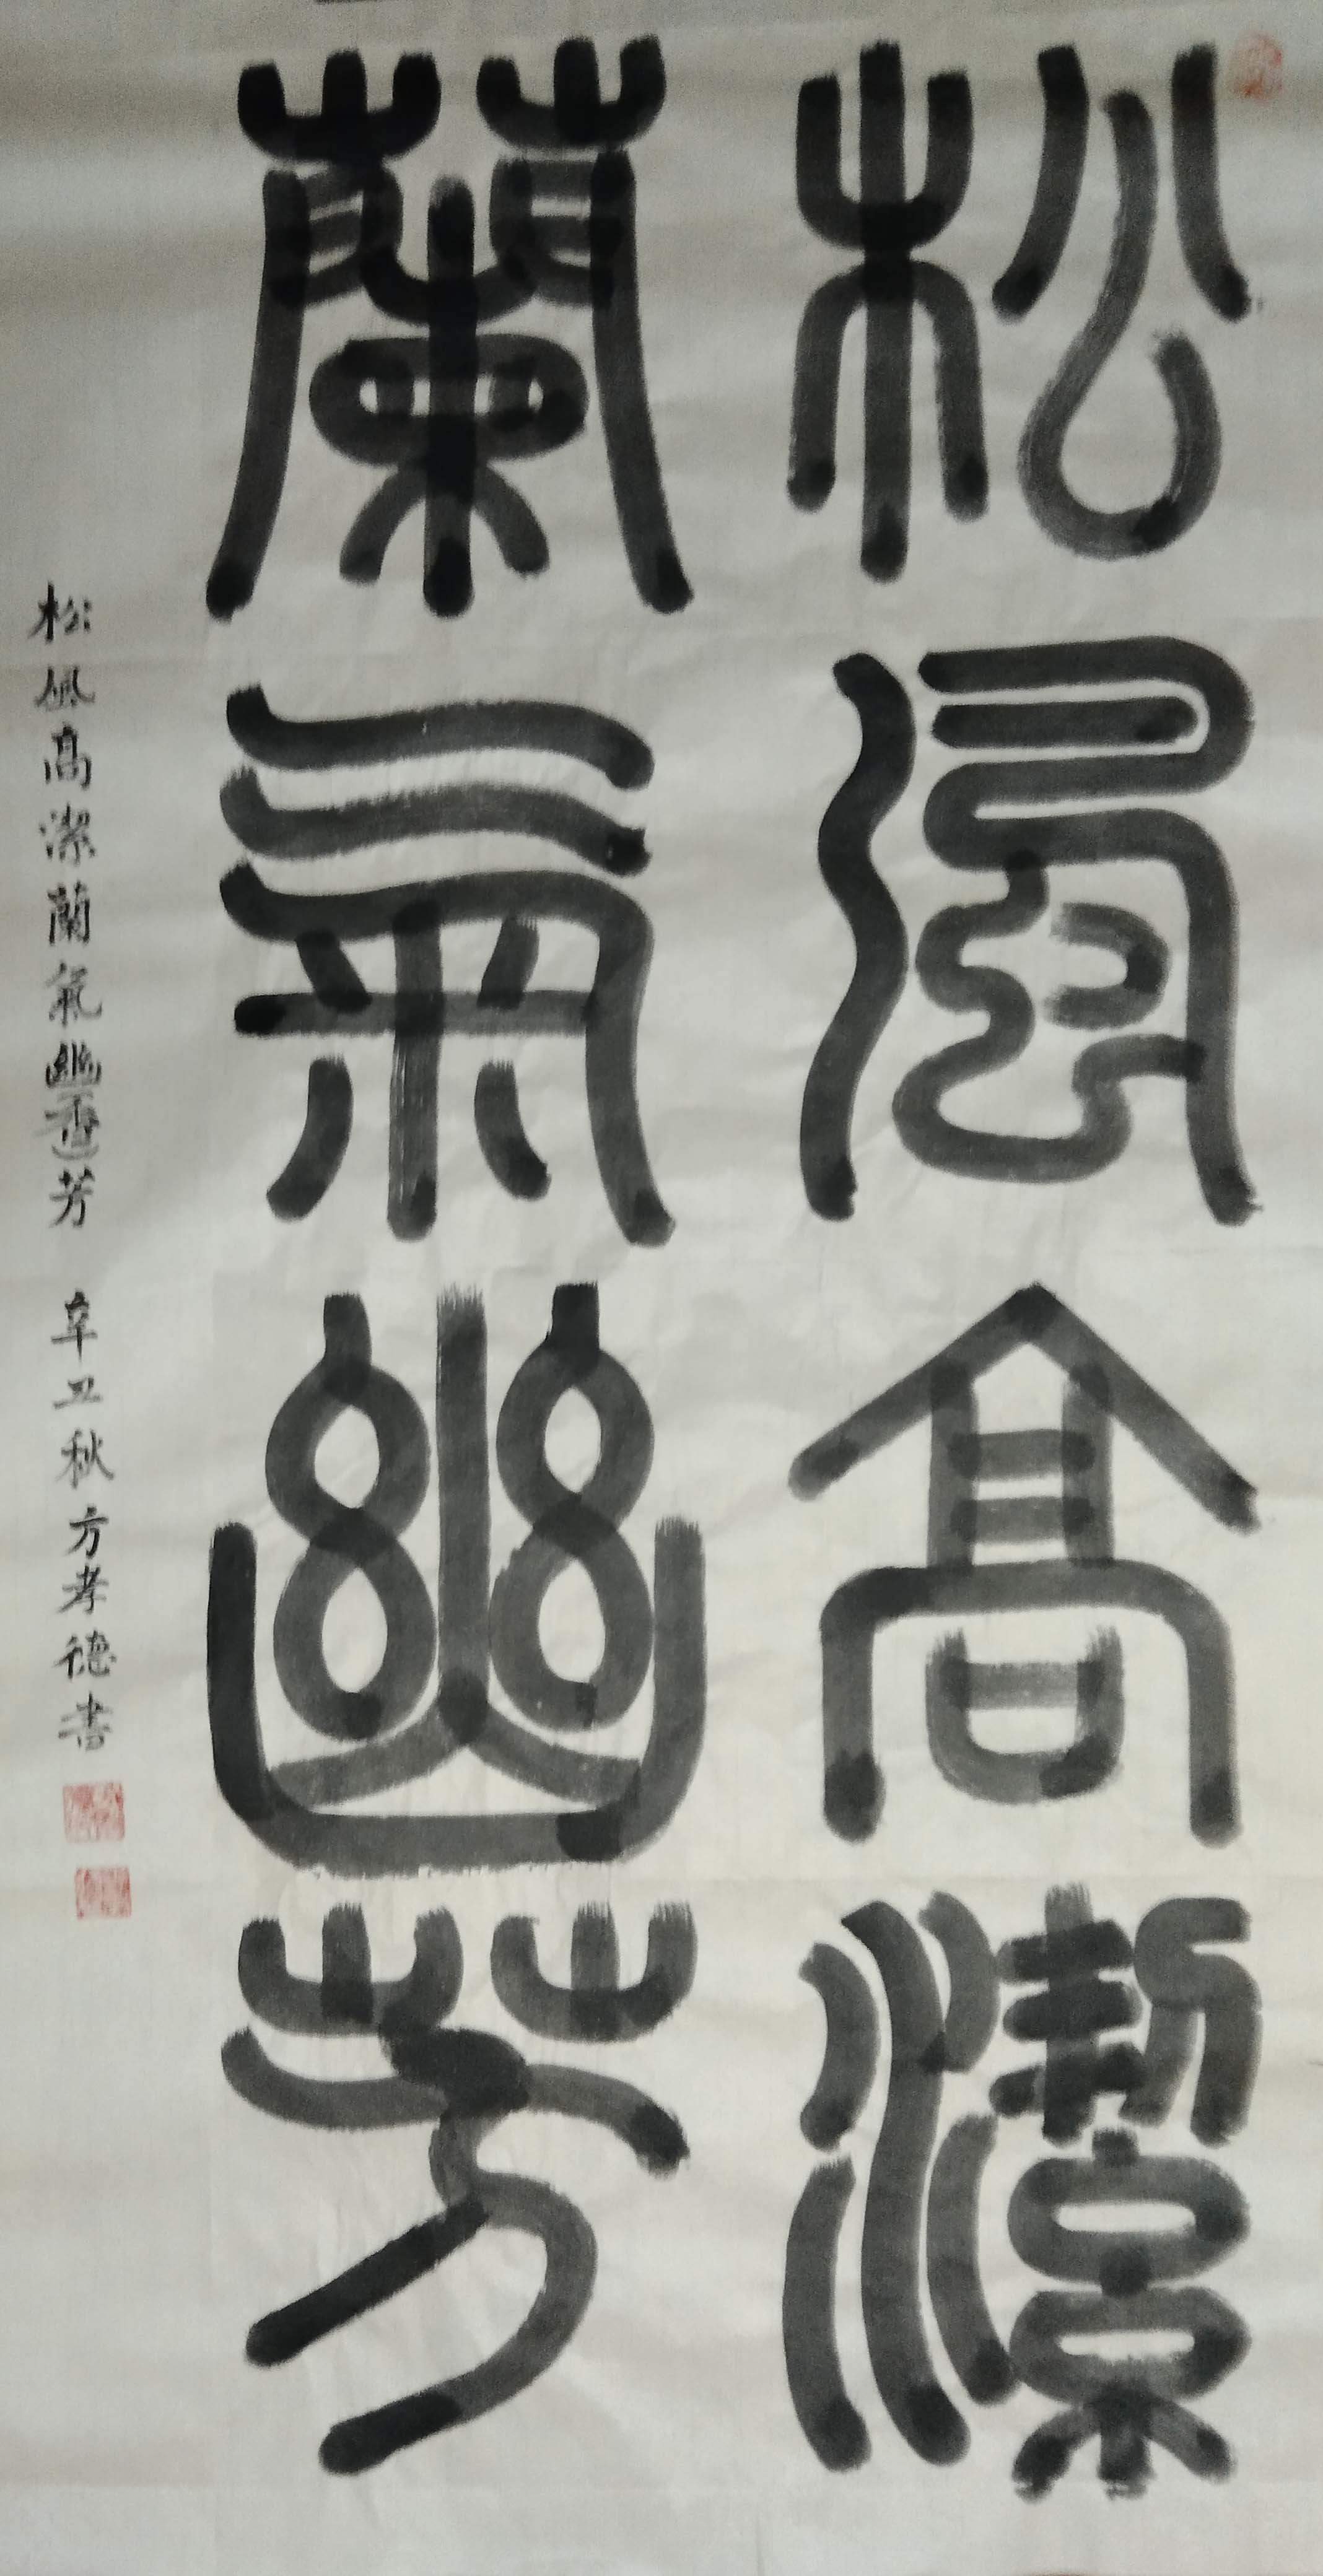 松風高潔
蘭氣幽芳
松風高潔蘭氣幽香芳 辛丑秋方孝德書